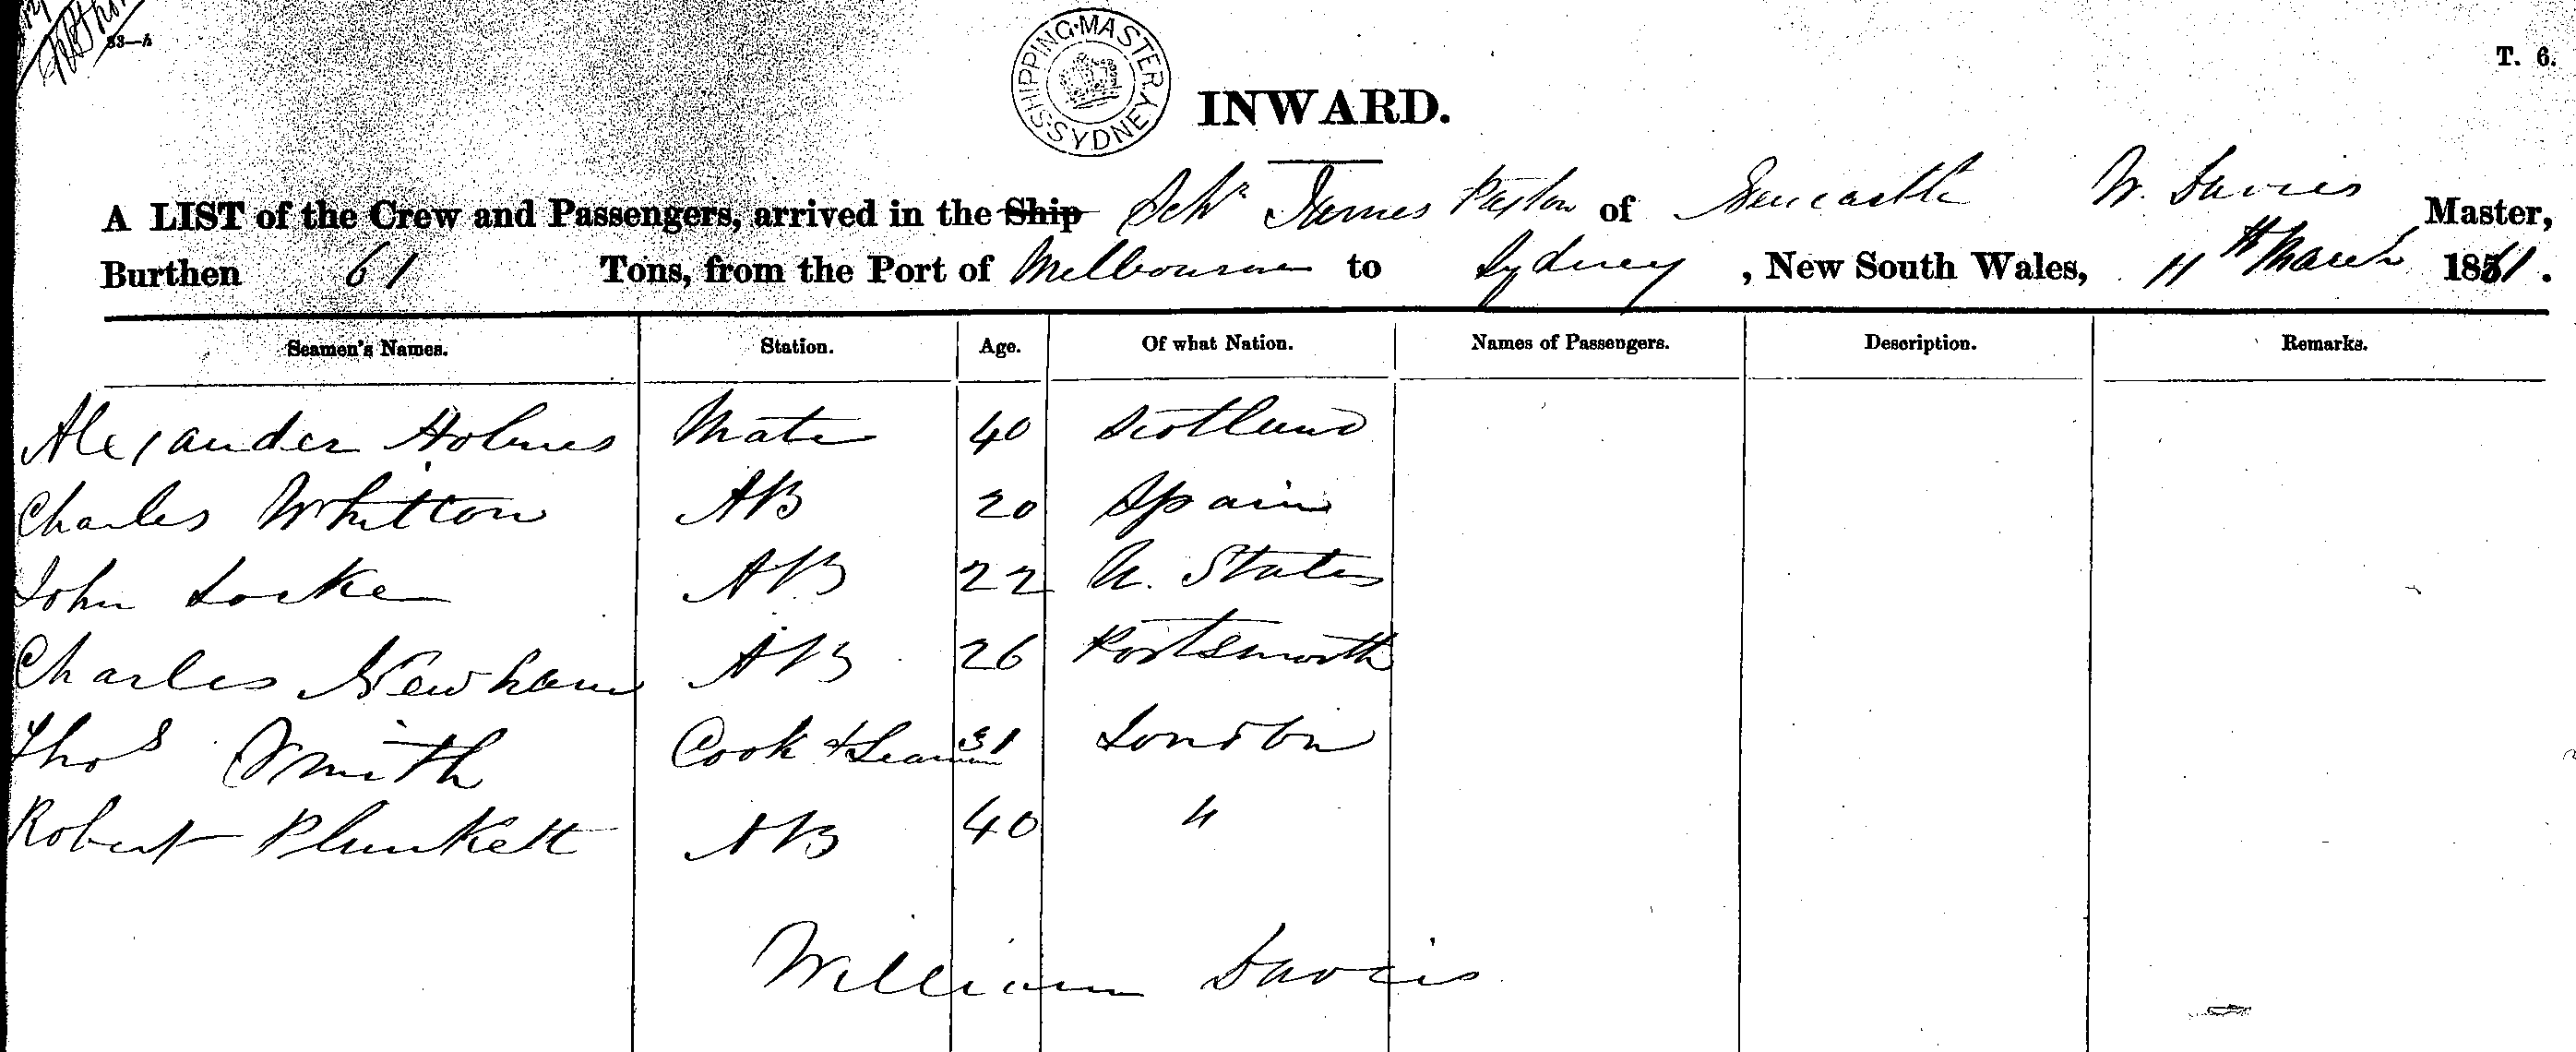 33—A
SHIPPING MASTER SYDNEY
T. 6.
INWARD.
A LIST of the Crew and Passengers, arrived in the Ship Schr James Paxton of Newcastle W. Davies Master,
Burthen 61 Tons, from the Port of Melbourne to Sydney, New South Wales, 11th March 1861.
Seamen's Names. Station. Age. Of what Nation. Names of Passengers. Description. Remarks.
Alexander Holmes Mate 40 Scotland
Charles Whitton AB 20 Spain
John Locke AB 22 U. States
Charles Newham AB 26 Portsmouth
Thos Smith Cook & Seaman 31 London
Robert Plunkett AB 40 "
William Davies